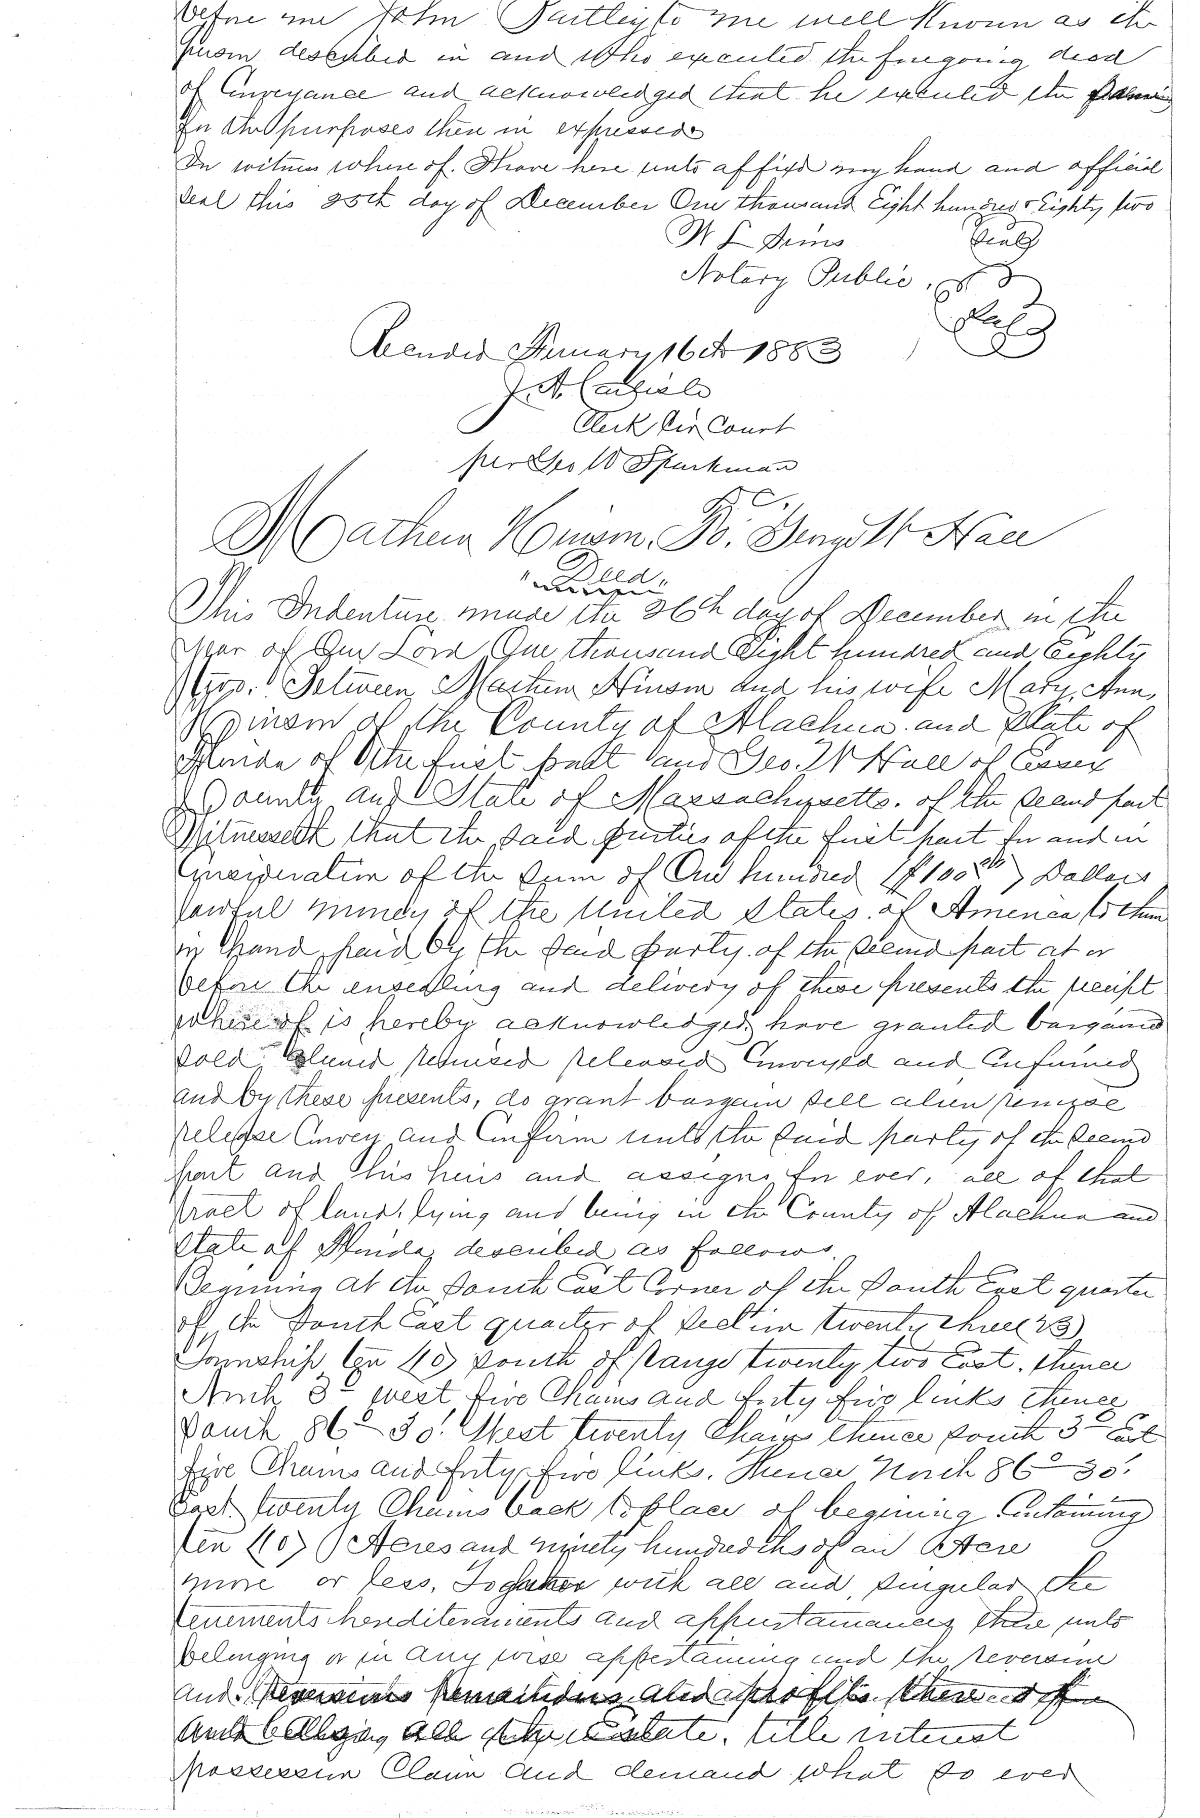 before me John Bartley to me well Known as the
person described in and who executed the foregoing deed
of Conveyance and acknowledged that he executed the same
for the purposes there in expressed
In witness where of. I have here unto affixd my hand and official
seal this 25th day of December One thousand Eight hundred & Eighty two
W L Sims Seal
Notary Public,
Seal
Recorded January 16th 1883
J. A. Carlisle
Clerk Cir Court
per Geo W Sparkman
D C,
Mathew Hinson. To. George W Hall
"Deed"
This Indenture made the 26th day of December in the
year of Our Lord One thousand Eight hundred and Eighty
Two. Between Mathew Hinson and his wife Mary Ann,
Hinson of the County of Alachua and State of
Florida of the first part and Geo. W Hall of Essex
County and State of Massachusetts. of the second part
Witnesseth that the said parties of the first part for and in
Consideration of the sum of One hundred ($100 00) Dollars
lawful money of the United States of America to them
in hand paid by the said party of the second part at or
before the ensealing and delivery of these presents the receipt
where of is hereby acknowledged have granted bargained
sold aliened remised released Conveyed and Confirmed
and by these presents, do grant bargain sell alien remise
release Convey and Confirm unto the said party of the second
part and his heirs and assigns for ever, all of that
tract of land, lying and being in the County of Alachua and
State of Florida described as follows.
Begining at the South East Corner of the South East quarter
of the South East quarter of Section twenty three (23)
Township Ten (10) South of Range twenty two East. thence
North 3° west five Chains and forty five links thence
South 86° 30' West twenty Chains thence south 3° East
five Chains and forty five links. Thence North 86° 30'
East twenty Chains back to place of begining Containing
ten (10) Acres and ninety hundredths of an Acre
more or less, Together with all and singular the
tenements herediteraments and appurtainances there unto
belonging or in any wise appertaining and the reversion
and reversions remainders and profits there of
and all the Estate, title interest
possession Claim and demand what so ever